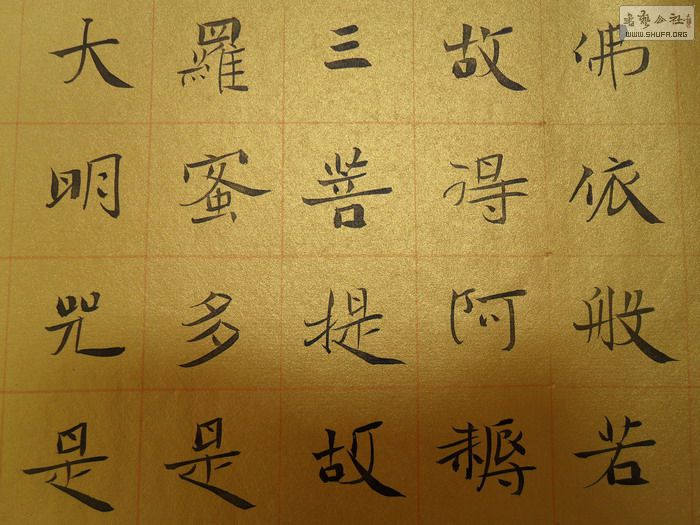 佛依般若
故得阿耨
三菩提故
羅蜜多是
大明咒是
書藝公社
WWW.SHUFA.ORG